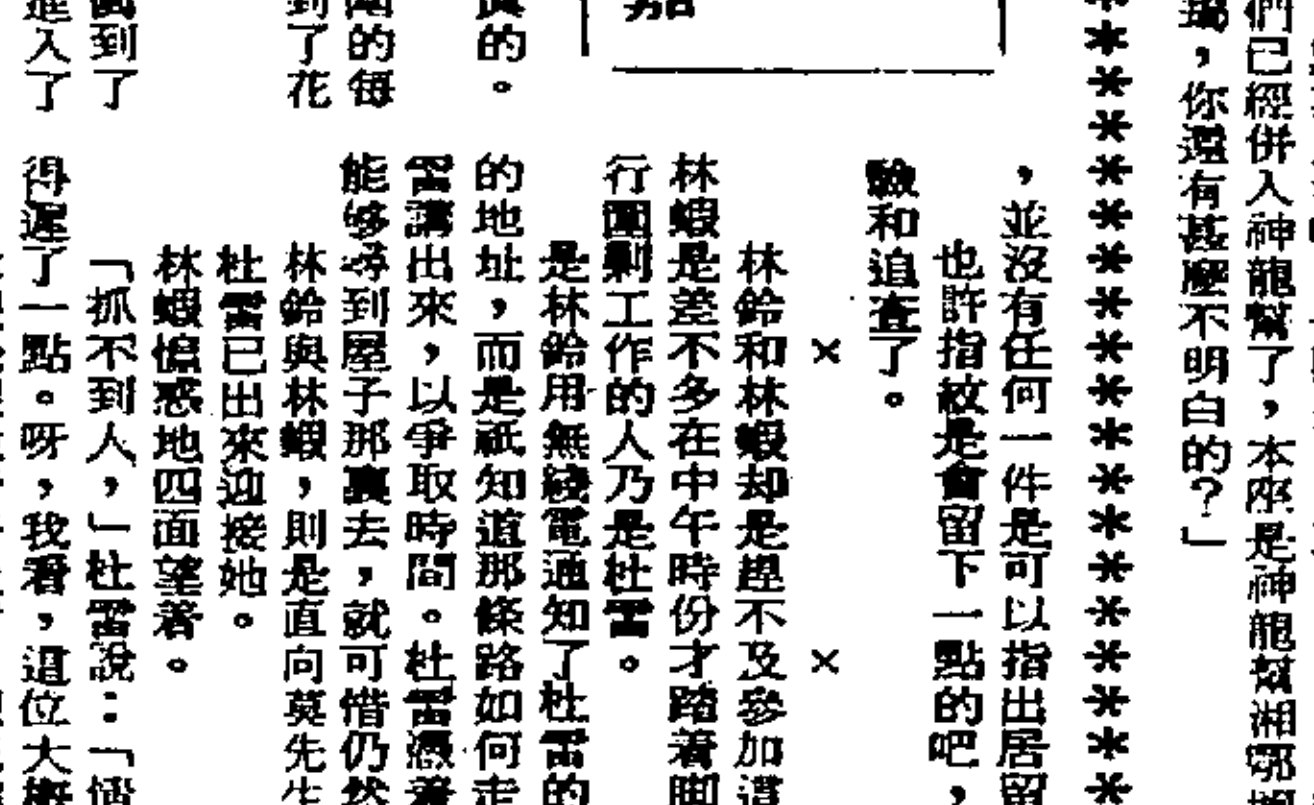 們已經併入神龍幫了，本座是神龍幫湘鄂
瑞，你還有甚麼不明白的？」
，並沒有任何一件是可以指出居留
也許指紋是會留下一點的吧，
驗和追查了。
× ×
林鈴和林蝦却是趕不及參加這
林蝦是差不多在中午時份才踏着脚
行圍剿工作的人乃是杜雷。
是林鈴用無綫電通知了杜雷的
的地址，而是祇知道那條路如何走
雷講出來，以爭取時間。杜雷憑着
能够尋到屋子那裏去，就可惜仍然
林鈴與林蝦，則是直向莫先生
杜雷已出來迎接她。
林蝦惶惑地四面望着。
「抓不到人，」杜雷說：「恤
得遲了一點。呀，我看，這位大概
的。
的每
到了花
到了
進入了